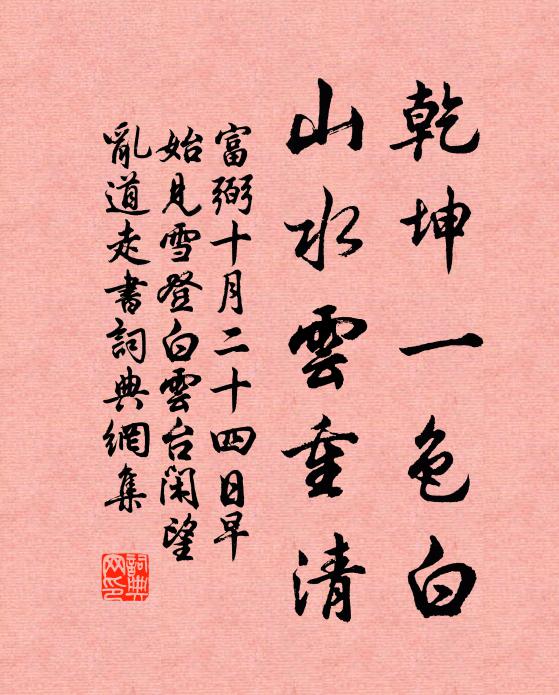 乾坤一色白
山水雲重清
富弼十月二十四日早
始見雪登白雲台閑望
亂道走書詞典網集
詞典
网印